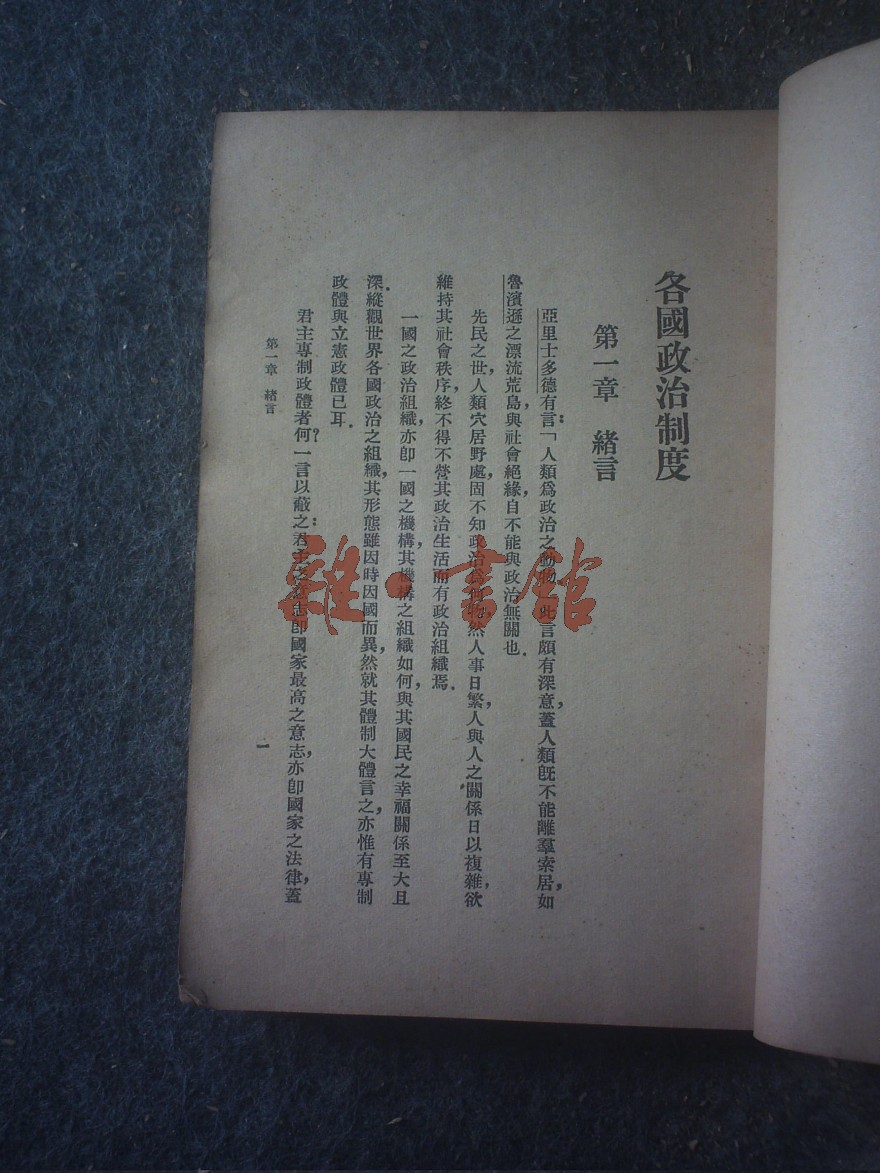 各國政治制度
第一章 緒言
亞里士多德有言:「人類爲政治之動物」此言頗有深意,蓋人類旣不能離羣索居,如
魯濱遜之漂流荒島,與社會絕緣,自不能與政治無關也.
先民之世,人類穴居野處,固不知政治爲何物,然人事日繁,人與人之關係日以複雜,欲
維持其社會秩序,終不得不營其政治生活而有政治組織焉.
一國之政治組織,亦卽一國之機構,其機構之組織如何,與其國民之幸福關係至大且
深.縱觀世界各國政治之組織,其形態雖因時因國而異,然就其體制大體言之,亦惟有專制
政體與立憲政體已耳.
君主專制政體者何?一言以蔽之:君主之意志卽國家最高之意志,亦卽國家之法律,蓋
第一章 緒言
一
雜·書館